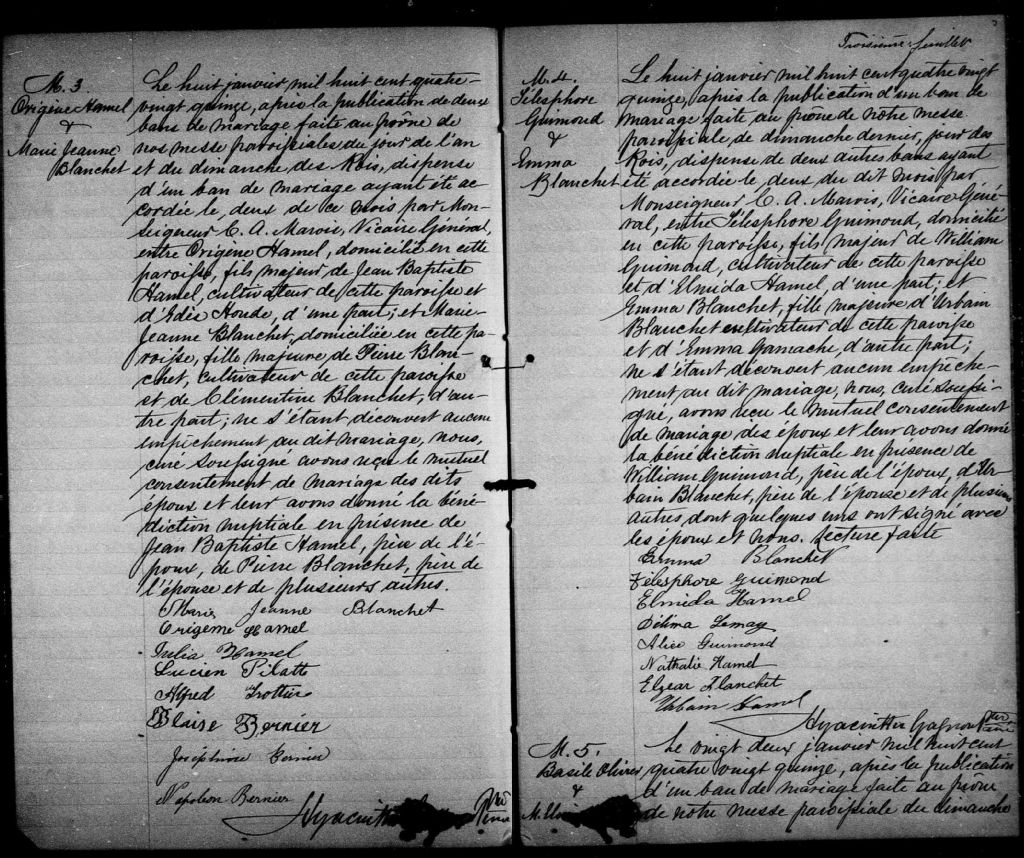 M. 3.
Origène Hamel
&
Marie Jeanne
Blanchet
Le huit janvier mil huit cent quatre-
vingt quinze, après la publication de deux
bans de mariage faite au prône de
nos messe paroissiales du jour de l'an
et du dimanche des Rois, dispense
d'un ban de mariage ayant été ac-
cordée le deux de ce mois par Mon-
seigneur C. A. Marois, Vicaire Général,
entre Origène Hamel, domicilié en cette
paroisse, fils majeur de Jean Baptiste
Hamel, cultivateur de cette paroisse et
d'Edée Houde, d'une part; et Marie
Jeanne Blanchet, domiciliée en cette pa-
roisse, fille majeure de Pierre Blan-
chet, cultivateur de cette paroisse
et de Clémentine Blanchet, d'au-
tre part; ne s'étant découvert aucun
empêchement au dit mariage, nous,
curé soussigné avons reçu le mutuel
consentement de mariage des dits
époux et leur avons donné la béné-
diction nuptiale en présence de
Jean Baptiste Hamel, père de l'é-
poux, de Pierre Blanchet, père de
l'épouse et de plusieurs autres.
Marie Jeanne Blanchet
Origène Hamel
Julia Hamel
Lucien Pilotte
Alfred Trottier
Blaise Bernier
Joséphine Bernier
Napoléon Bernier
Hyacinthe Ptre
Curé
Troisième feuillet
M. 4.
Télesphore
Guimond
&
Emma
Blanchet
Le huit janvier mil huit cent quatre vingt
quinze, après la publication d'un ban de
mariage faite au prône de notre messe
paroissiale de dimanche dernier, jour des
Rois, dispense de deux autres bans ayant
été accordée le deux du dit mois par
Monseigneur C. A. Marois, Vicaire Géné-
ral, entre Télesphore Guimond, domicilié
en cette paroisse, fils majeur de William
Guimond, cultivateur de cette paroisse
et d'Elmida Hamel, d'une part; et
Emma Blanchet, fille majeure d'Urbain
Blanchet cultivateur de cette paroisse
et d'Emma Gamache, d'autre part;
ne s'étant découvert aucun empêche-
ment au dit mariage, nous, curé soussi-
gné, avons reçu le mutuel consentement
de mariage des époux et leur avons donné
la bénédiction nuptiale en présence de
William Guimond, père de l'époux, d'Ur-
bain Blanchet, père de l'épouse et de plusieurs
autres, dont quelques uns ont signé avec
les époux et nous. Lecture faite
Emma Blanchet
Télesphore Guimond
Elmida Hamel
Délima Lemay
Alice Guimond
Nathalie Hamel
Elzear Blanchet
Urbain Hamel
Hyacinthe Gagnon Ptre
Curé
M. 5.
Basile Olivier
&
M.
Le vingt deux janvier mil huit cent
quatre vingt quinze, après la publication
d'un ban de mariage faite au prône
de notre messe paroissiale du dimanche